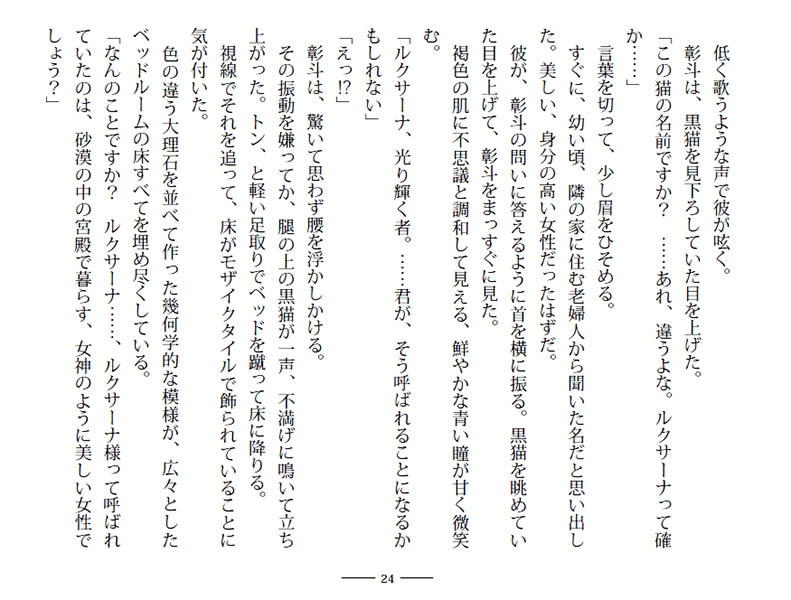 低く歌うような声で彼が呟く。
彰斗は、黒猫を見下ろしていた目を上げた。
「この猫の名前ですか？　……あれ、違うよな。ルクサーナって確
か……」
言葉を切って、少し眉をひそめる。
すぐに、幼い頃、隣の家に住む老婦人から聞いた名だと思い出し
た。美しい、身分の高い女性だったはずだ。
彼が、彰斗の問いに答えるように首を横に振る。黒猫を眺めてい
た目を上げて、彰斗をまっすぐに見た。
褐色の肌に不思議と調和して見える、鮮やかな青い瞳が甘く微笑
む。
「ルクサーナ、光り輝く者。……君が、そう呼ばれることになるか
もしれない」
「えっ!?」
彰斗は、驚いて思わず腰を浮かしかける。
その振動を嫌ってか、腿の上の黒猫が一声、不満げに鳴いて立ち
上がった。トン、と軽い足取りでベッドを蹴って床に降りる。
視線でそれを追って、床がモザイクタイルで飾られていることに
気が付いた。
色の違う大理石を並べて作った幾何学的な模様が、広々とした
ベッドルームの床すべてを埋め尽くしている。
「なんのことですか？　ルクサーナ……、ルクサーナ様って呼ばれ
ていたのは、砂漠の中の宮殿で暮らす、女神のように美しい女性で
しょう？」
24